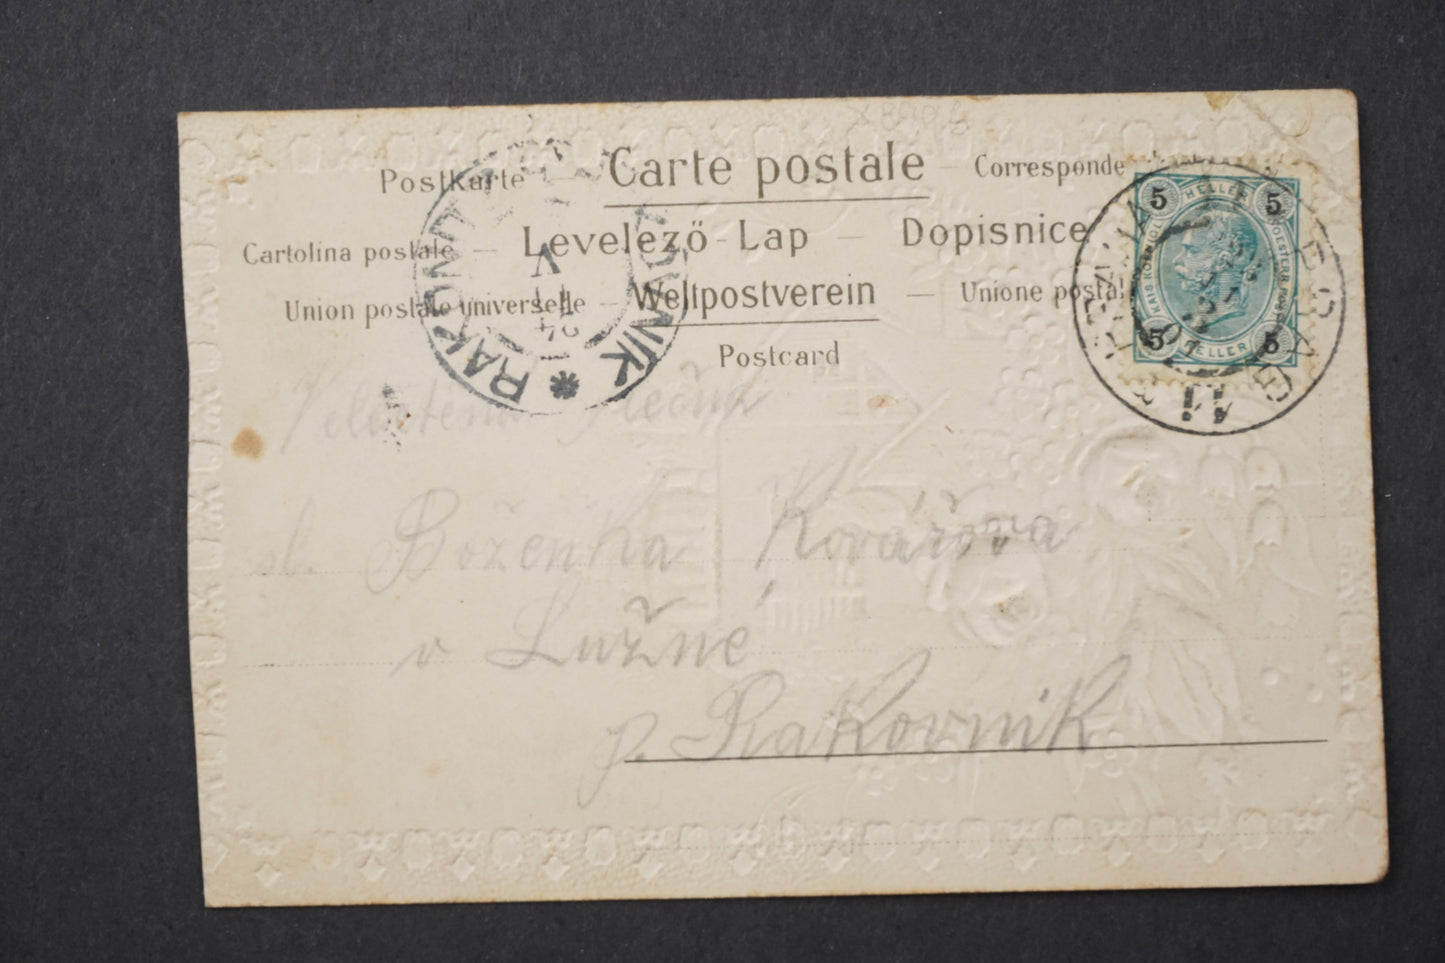 Postkarte — Carte postale — Corresponde
Cartolina postale — Levelező-Lap — Dopisnice
Union postale universelle — Weltpostverein — Unione postal
Postcard
RAKONITZ
RAKOVNIK
5 HELLER 5
KAIS. KOENIGL. OESTERR. POST
5 HELLER 5
slečna
sl. Boženka Kovářova
v Lužné
p. Rakovník